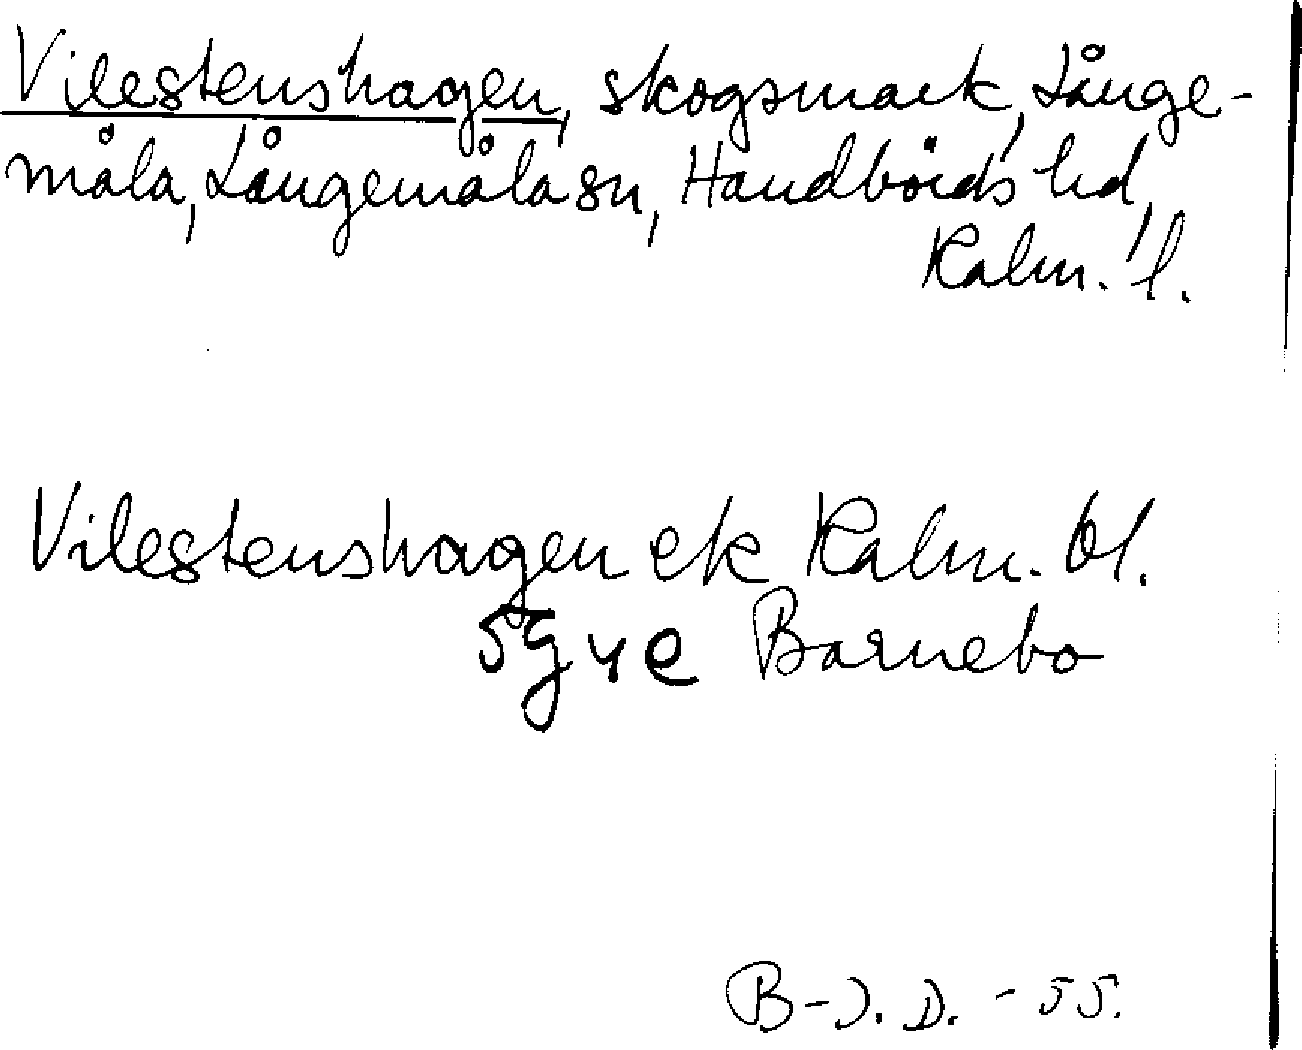 Vilestenshagen, skogsmark, Långe-
måla, Långemåla sn, Handbörds hd,
Kalm. l.
Vilestenshagen ek Kalm. bl.
5g 4e Barnebo
B-J. D. - 55.